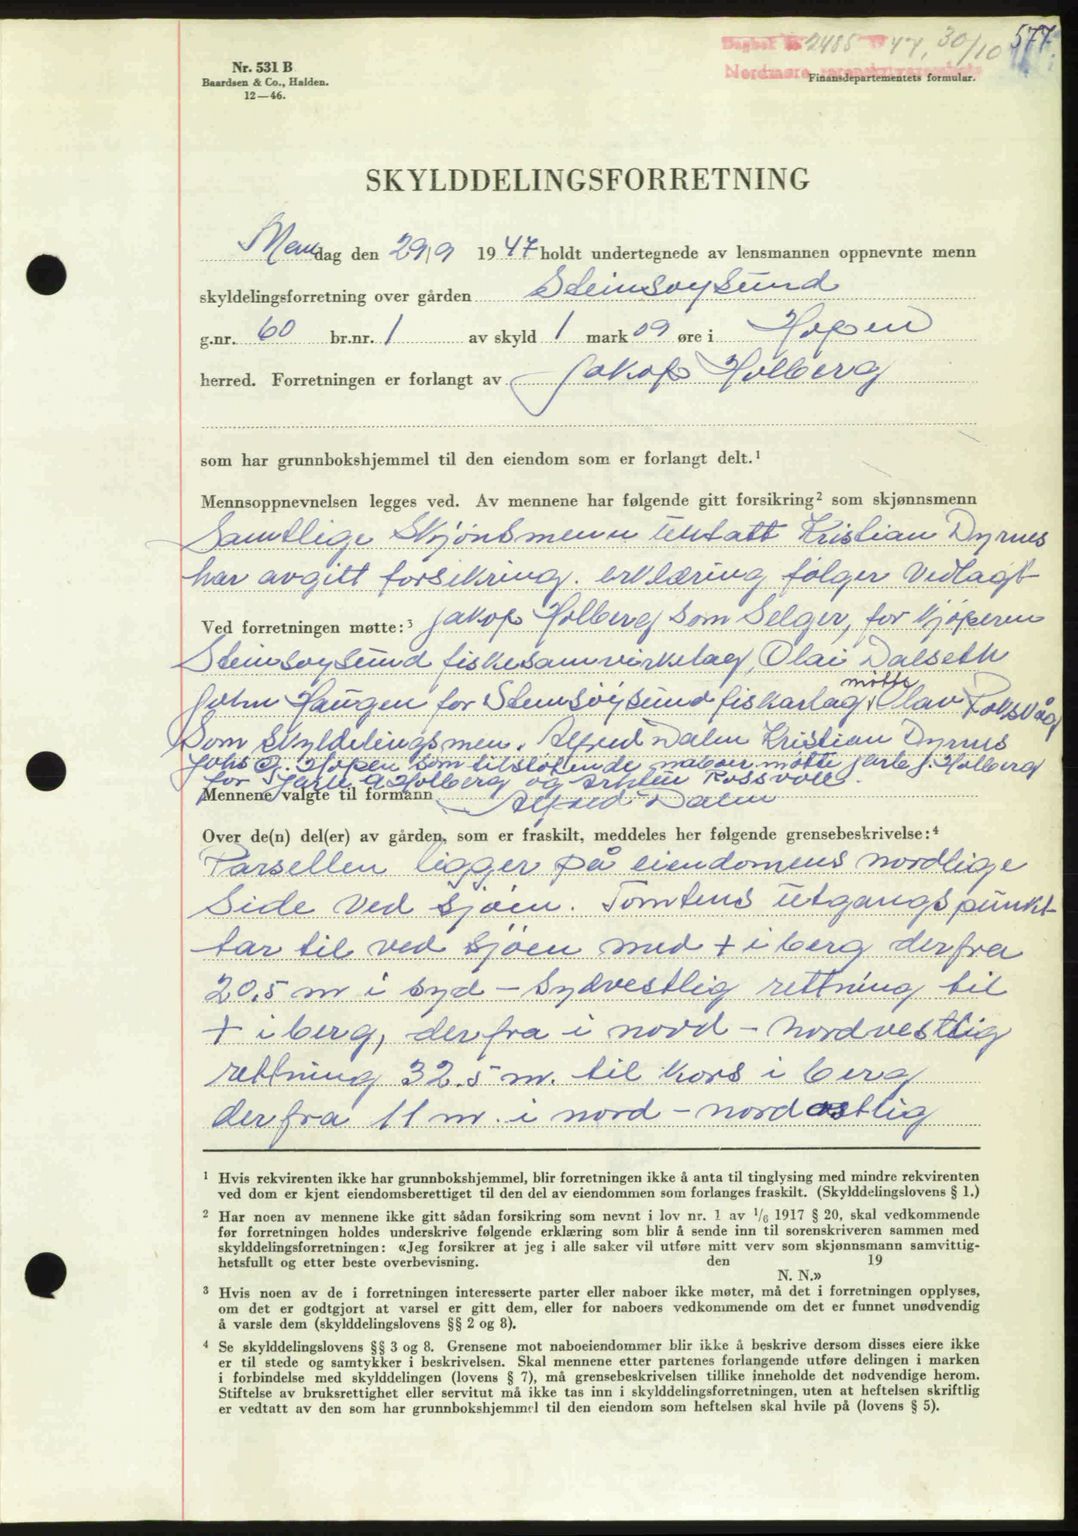 577
Dagbok 2485 47, 30/10
Nordmøre sorenskriverembete
Nr. 531 B
Baardsen & Co., Halden.
12—46.
Finansdepartementets formular.
SKYLDDELINGSFORRETNING
Mandag den 29/9 1947 holdt undertegnede av lensmannen oppnevnte menn
skyldelingsforretning over gården Steinsøysund
g.nr. 60 br.nr. 1 av skyld 1 mark 09 øre i Hopen
herred. Forretningen er forlangt av Jakob Holberg
som har grunnbokshjemmel til den eiendom som er forlangt delt.¹
Mennsoppnevnelsen legges ved. Av mennene har følgende gitt forsikring² som skjønnsmenn
Samtlige Skjönsmenn untatt Kristian Dyrnes
har avgitt forsikring. erklæring følger vedlagt
Ved forretningen møtte:³ Jakob Holberg som Selger, for kjøperen
Steinsøysund fiskesamvirkelag, Olai Dalseth
John Haugen for Steinsöysund fiskarlag, møtte Olav Roksvåg
Som Skyldelingsmen. Alfred Dalen Kristian Dyrnes
Johs G. Hopen som tilstøtende naboer møtte Jarle J. Holberg
for Jarle A Holberg og Rossvoll.
Mennene valgte til formann Alfred Dalen
Over de(n) del(er) av gården, som er fraskilt, meddeles her følgende grensebeskrivelse:⁴
Parsellen ligger på eiendomens nordlige
Side ved Sjöen. Tomtens utgangspunkt
tar til ved Sjöen med + i berg derfra
20,5 m i syd - Sydvestlig rettning til
+ i berg, derfra i nord - Nordvestlig
rettning 32.5 m. til kors i berg
derfra 11 m. i nord - nordostlig
¹ Hvis rekvirenten ikke har grunnbokshjemmel, blir forretningen ikke å anta til tinglysing med mindre rekvirenten
ved dom er kjent eiendomsberettiget til den del av eiendommen som forlanges fraskilt. (Skylddelingslovens § 1.)
² Har noen av mennene ikke gitt sådan forsikring som nevnt i lov nr. 1 av 1/6 1917 § 20, skal vedkommende
før forretningen holdes underskrive følgende erklæring som blir å sende inn til sorenskriveren sammen med
skylddelingsforretningen: «Jeg forsikrer at jeg i alle saker vil utføre mitt verv som skjønnsmann samvittig-
hetsfullt og etter beste overbevisning. den 19
N. N.»
³ Hvis noen av de i forretningen interesserte parter eller naboer ikke møter, må det i forretningen opplyses,
om det er godtgjort at varsel er gitt dem, eller for naboers vedkommende om det er funnet unødvendig
å varsle dem (skylddelingslovens §§ 2 og 8).
⁴ Se skylddelingslovens §§ 3 og 8. Grensene mot naboeiendommer blir ikke å beskrive dersom disses eiere ikke
er til stede og samtykker i beskrivelsen. Skal mennene etter partenes forlangende utføre delingen i marken
i forbindelse med skylddelingen (lovens § 7), må grensebeskrivelsen tillike inneholde det nødvendige herom.
Stiftelse av bruksrettighet eller servitut må ikke tas inn i skylddelingsforretningen, uten at heftelsen skriftlig
er vedtatt av den som har grunnbokshjemmel til den eiendom som heftelsen skal hvile på (lovens § 5).